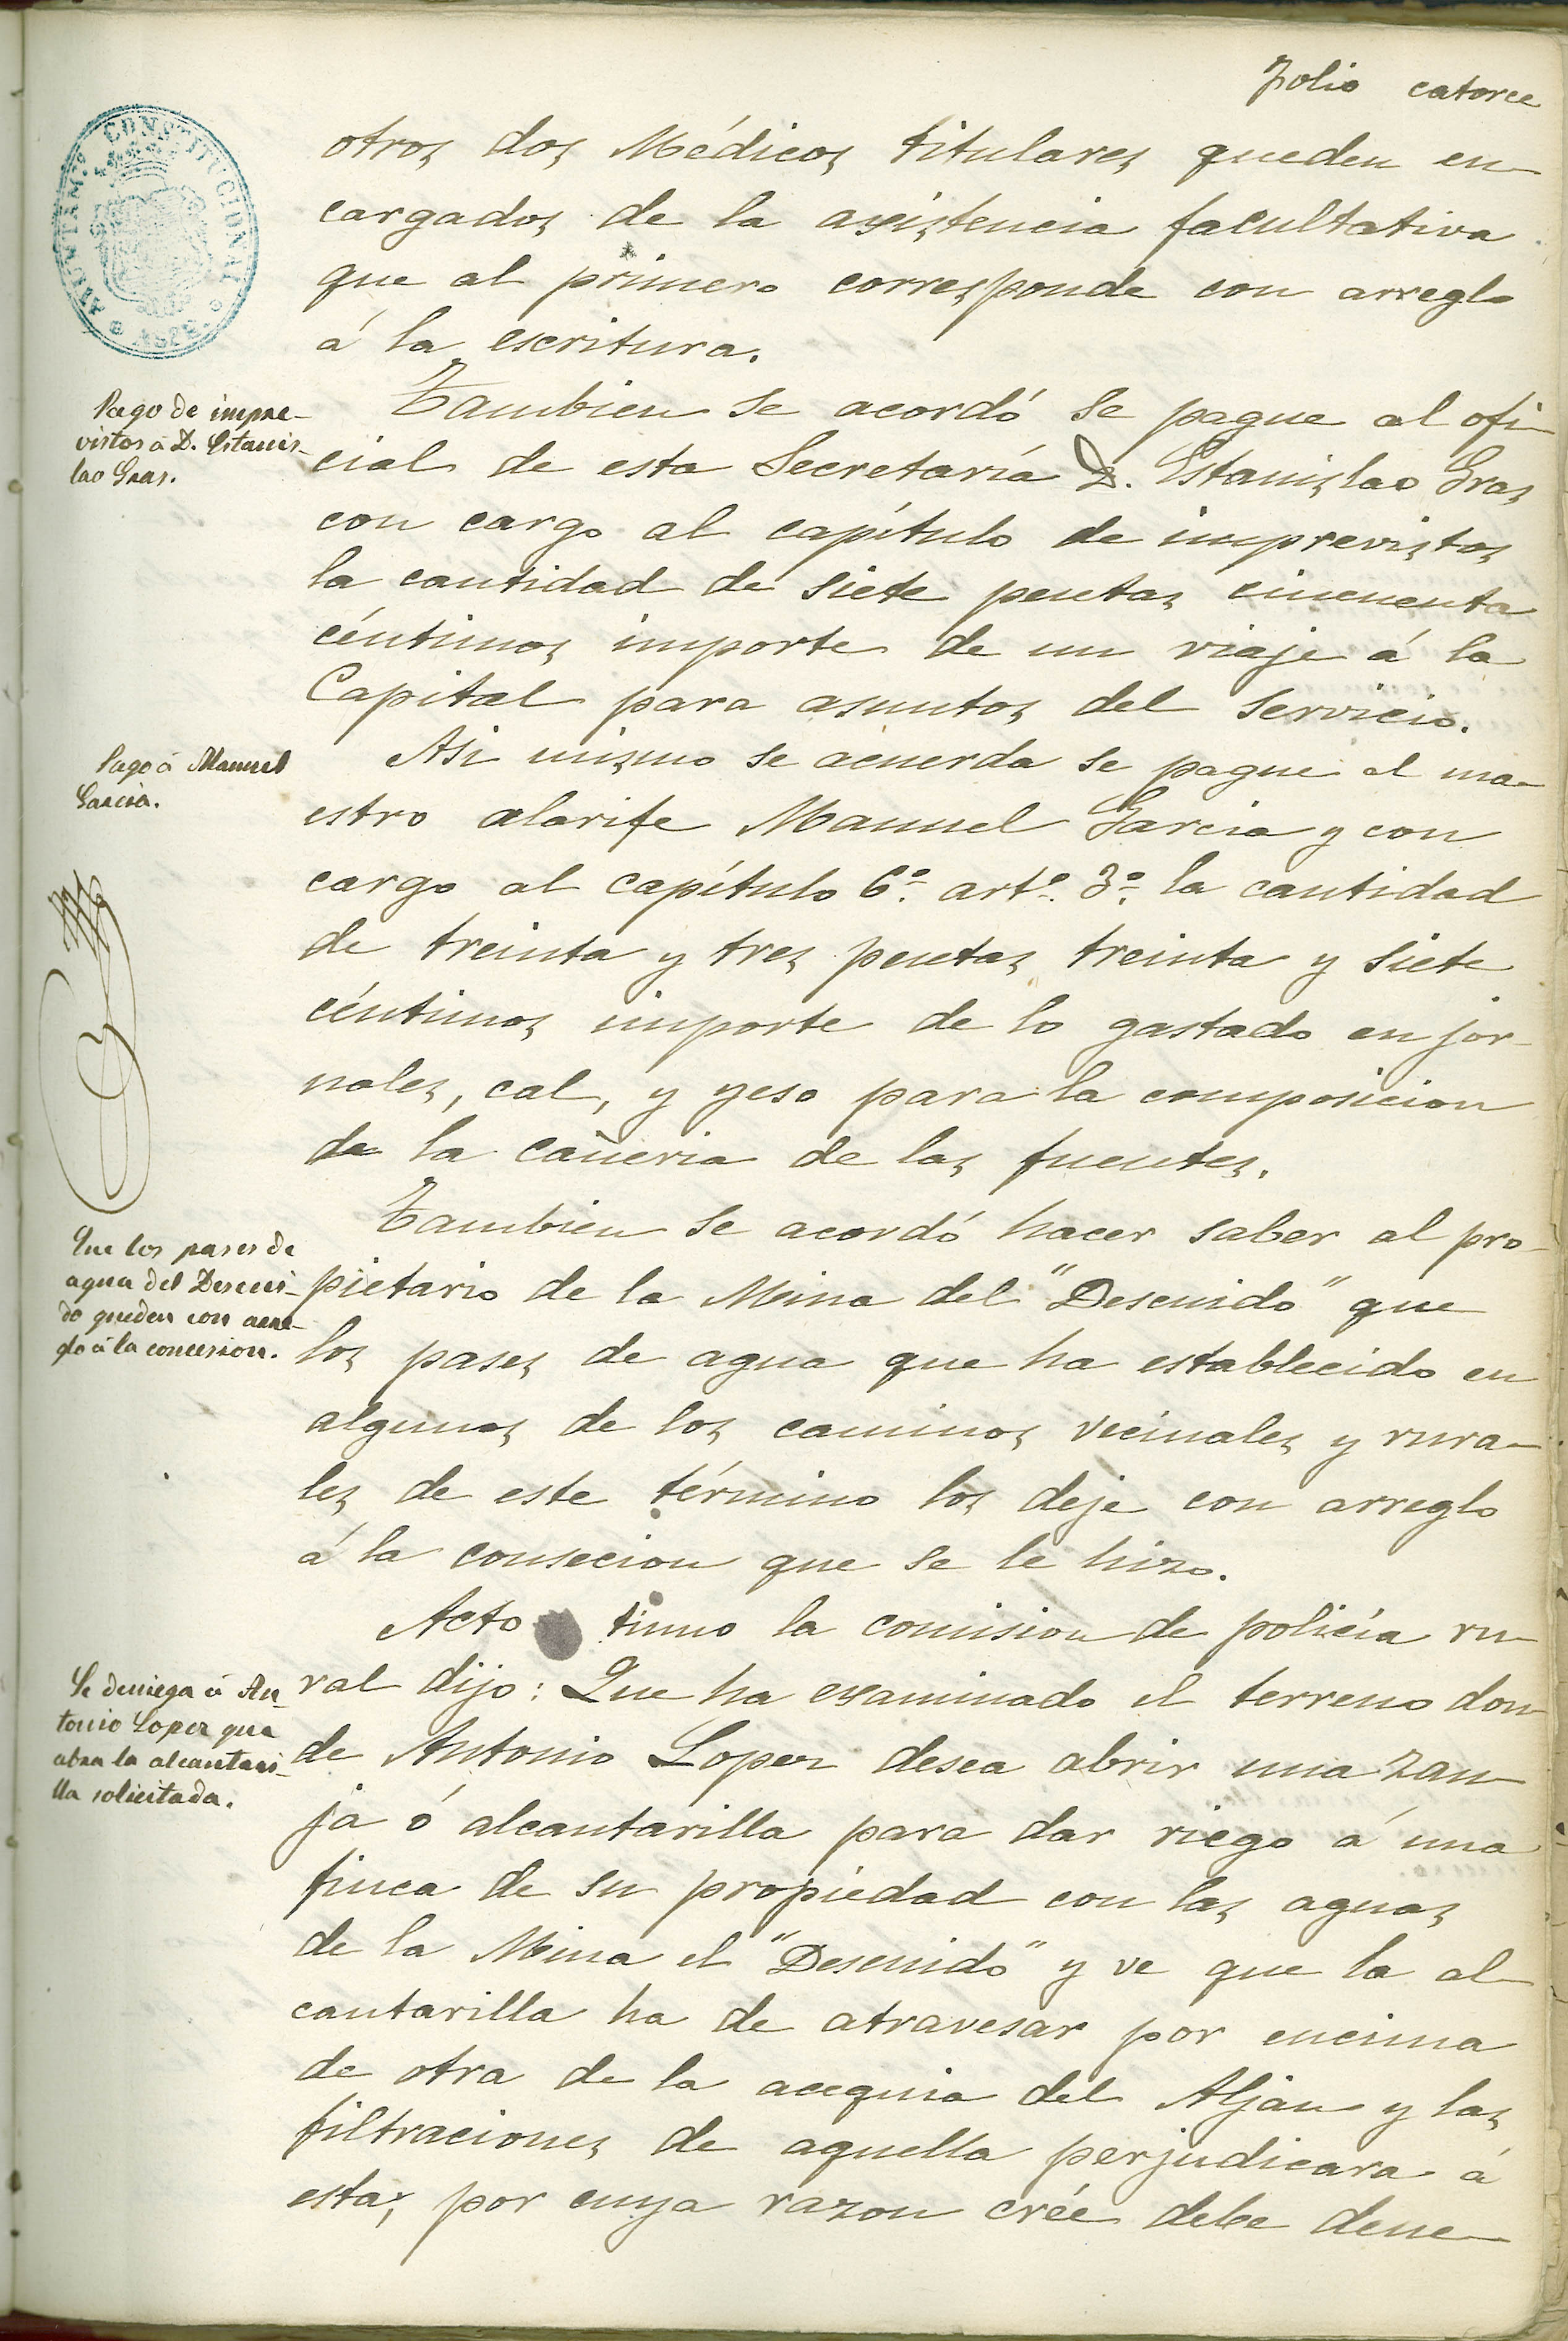 Folio catorce
AYUNTAM.º CONSTITUCIONAL
ASPE
otros dos Médicos titulares queden en-
cargados de la asistencia facultativa
que al primero corresponde con arreglo
á la escritura.
Pago de impre-
vistos á D. Estanis-
lao Gras.
Tambien se acordó se pague al ofi-
cial de esta Secretaría D. Estanislao Gras
con cargo al capítulo de imprevistos
la cantidad de siete pesetas cincuenta
céntimos importe de un viaje á la
Capital para asuntos del servicio.
Pago á Manuel
Garcia.
Asi mismo se acuerda se pague al ma-
estro alarife Manuel Garcia y con
cargo al capítulo 6º. artº. 3º. la cantidad
de treinta y tres pesetas treinta y siete
céntimos importe de lo gastado en jor-
nales, cal, y yeso para la composicion
de la cañeria de las fuentes.
Que los pases de
agua del Descui-
do queden con arre-
glo á la concesion.
Tambien se acordó hacer saber al pro-
pietario de la Mina del "Descuido" que
los pases de agua que ha establecido en
algunos de los caminos vecinales y rura-
les de este término los deje con arreglo
á la consecion que se le hizo.
Acto tinuo la comision de policía ru-
Se deniega á An-
tonio Lopez que
abra la alcantari-
lla solicitada.
ral dijo: Que ha examinado el terreno don-
de Antonio Lopez desea abrir una zan-
ja ó alcantarilla para dar riego á una
finca de su propiedad con las aguas
de la Mina el "Descuido" y ve que la al-
cantarilla ha de atravesar por encima
de otra de la acequia del Aljau y las
filtraciones de aquella perjudicara á
esta; por cuya razon crée debe dene-